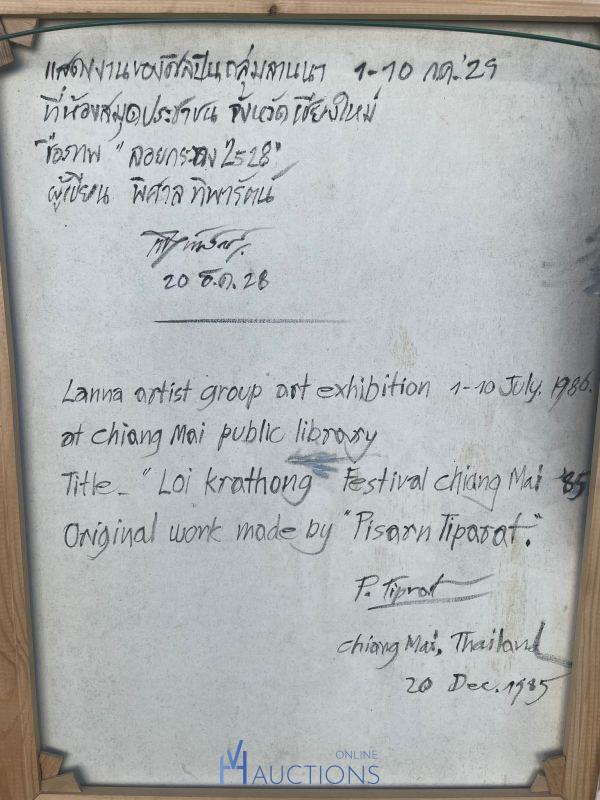 แสดงงานของศิลปินกลุ่มลานนา 1-10 ก.ค.'29
ที่ห้องสมุดประชาชน จังหวัดเชียงใหม่
ชื่อภาพ "ลอยกระทง '2528"
ผู้เขียน พิศาล ทิพารัตน์
20 ธ.ค. 28
Lanna artist group art exhibition 1-10 July. 1986.
at chiang Mai public library
Title- "Loi krathong Festival chiang Mai '85
Original work made by "Pisarn Tiparat."
P. Tiprat
chiang Mai, Thailand
20 Dec. 1985
VH ONLINE
AUCTIONS